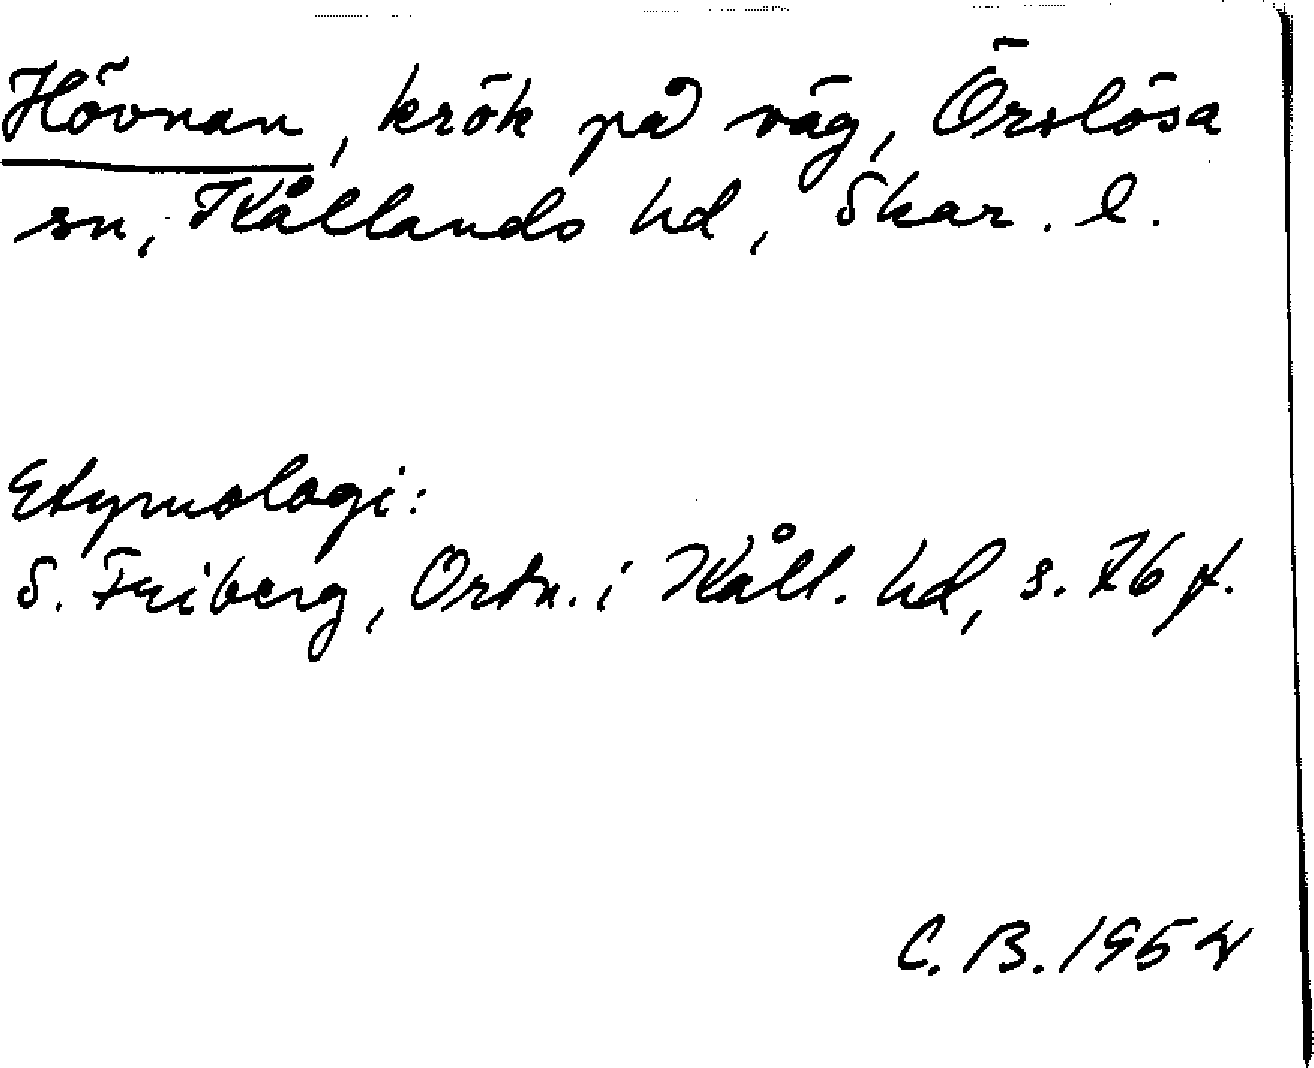 Hövnan, krök på väg, Örslösa
sn, Kållands hd, Skar. l.
Etymologi:
S. Friberg, Ortn. i Kåll. hd, s.
C. B.